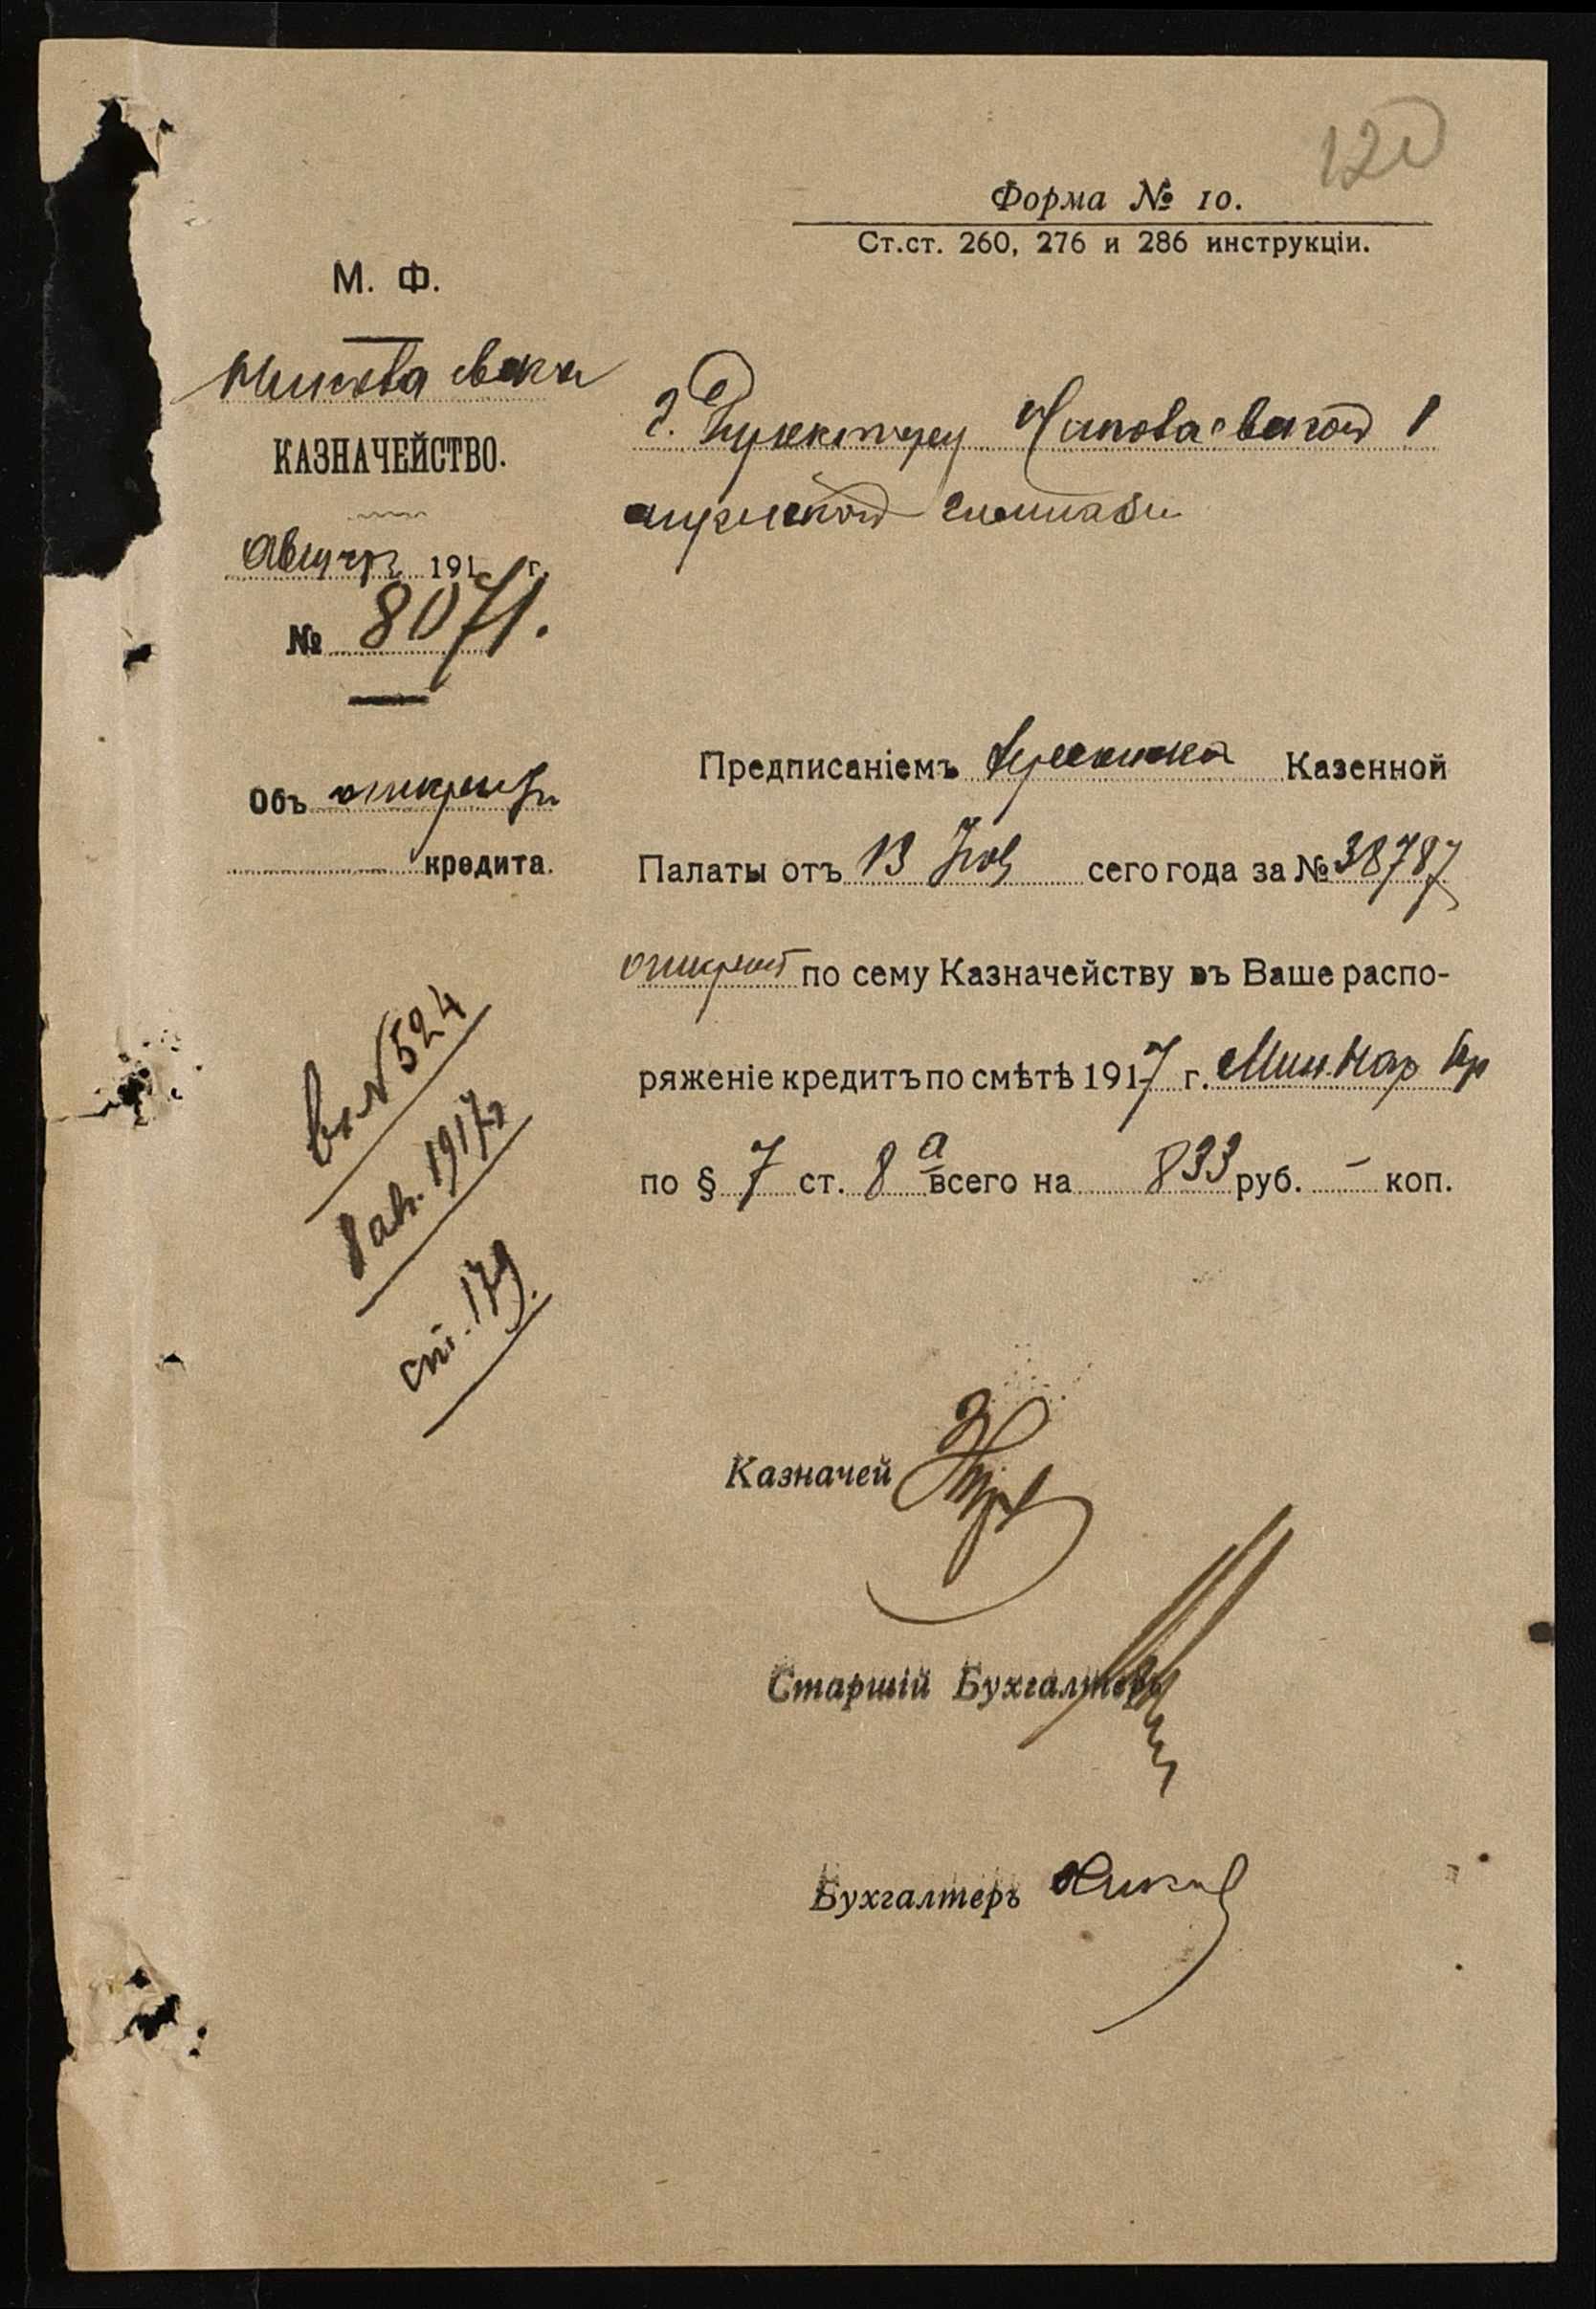 120
Форма № 10.
Ст.ст. 260, 276 и 286 инструкціи.
М. Ф.
КАЗНАЧЕЙСТВО.
191 г.
№ 8071.
Объ
кредита.
Г. Директору 1
мужской гимназіи
Предписаніемъ Казенной
Палаты отъ 13 сего года за № 38787
открытъ по сему Казначейству въ Ваше распо-
ряженіе кредитъ по смѣтѣ 1917 г. Мин. Нар. Пр
по § 7 ст. 8 а всего на 833 руб. – коп.
вх. № 524
8 ав. 1917 г.
ст. 179.
Казначей
Старшій Бухгалтеръ
Бухгалтеръ